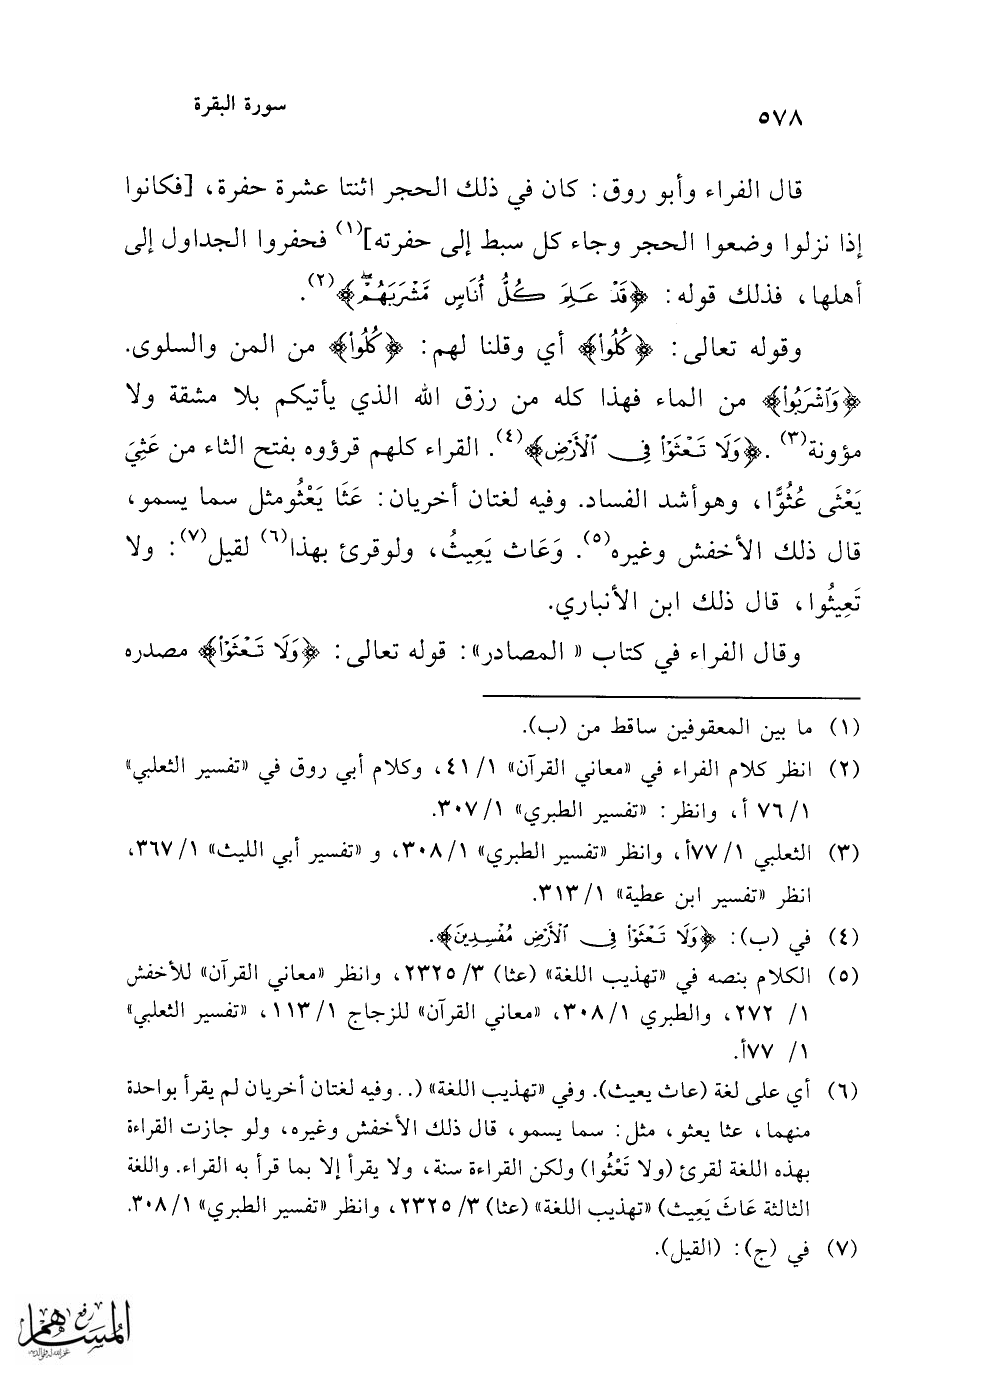 ٥٧٨ سورة البقرة
قال الفراء وأبو روق: كان في ذلك الحجر اثنتا عشرة حفرة، [فكانوا
إذا نزلوا وضعوا الحجر وجاء كل سبط إلى حفرته](١) فحفروا الجداول إلى
أهلها، فذلك قوله: ﴿قَدْ عَلِمَ كُلُّ أُنَاسٍ مَّشْرَبَهُمْ ۖ﴾(٢).
وقوله تعالى: ﴿كُلُوا۟﴾ أي وقلنا لهم: ﴿كُلُوا۟﴾ من المن والسلوى.
﴿وَٱشْرَبُوا۟﴾ من الماء فهذا كله من رزق الله الذي يأتيكم بلا مشقة ولا
مؤونة(٣). ﴿وَلَا تَعْثَوْا۟ فِى ٱلْأَرْضِ﴾(٤). القراء كلهم قرؤوه بفتح الثاء من عَثِيَ
يَعْثَى عُثُوًّا، وهوأشد الفساد. وفيه لغتان أخريان: عَثَا يَعْثُومثل سما يسمو،
قال ذلك الأخفش وغيره(٥). وَعَاث يَعِيثُ، ولوقرئ بهذا(٦) لقيل(٧): ولا
تَعِيثُوا، قال ذلك ابن الأنباري.
وقال الفراء في كتاب « المصادر»: قوله تعالى: ﴿وَلَا تَعْثَوْا۟﴾ مصدره
(١) ما بين المعقوفين ساقط من (ب).
(٢) انظر كلام الفراء في «معاني القرآن» ١/ ٤١، وكلام أبي روق في «تفسير الثعلبي»
١/ ٧٦ أ، وانظر: «تفسير الطبري» ١/ ٣٠٧.
(٣) الثعلبي ١/ ٧٧أ، وانظر «تفسير الطبري» ١/ ٣٠٨، و «تفسير أبي الليث» ١/ ٣٦٧،
انظر «تفسير ابن عطية» ١/ ٣١٣.
(٤) في (ب): ﴿وَلَا تَعْثَوْا۟ فِى ٱلْأَرْضِ مُفْسِدِينَ﴾.
(٥) الكلام بنصه في «تهذيب اللغة» (عثا) ٣/ ٢٣٢٥، وانظر «معاني القرآن» للأخفش
١/ ٢٧٢، والطبري ١/ ٣٠٨، «معاني القرآن» للزجاج ١/ ١١٣، «تفسير الثعلبي»
١/ ٧٧أ.
(٦) أي على لغة (عاث يعيث). وفي «تهذيب اللغة» (.. وفيه لغتان أخريان لم يقرأ بواحدة
منهما، عثا يعثو، مثل: سما يسمو، قال ذلك الأخفش وغيره، ولو جازت القراءة
بهذه اللغة لقرئ (ولا تَعْثُوا) ولكن القراءة سنة، ولا يقرأ إلا بما قرأ به القراء. واللغة
الثالثة عَاثَ يَعِيث) «تهذيب اللغة» (عثا) ٣/ ٢٣٢٥، وانظر «تفسير الطبري» ١/ ٣٠٨.
(٧) في (ج): (القيل).
رفع
المساهم